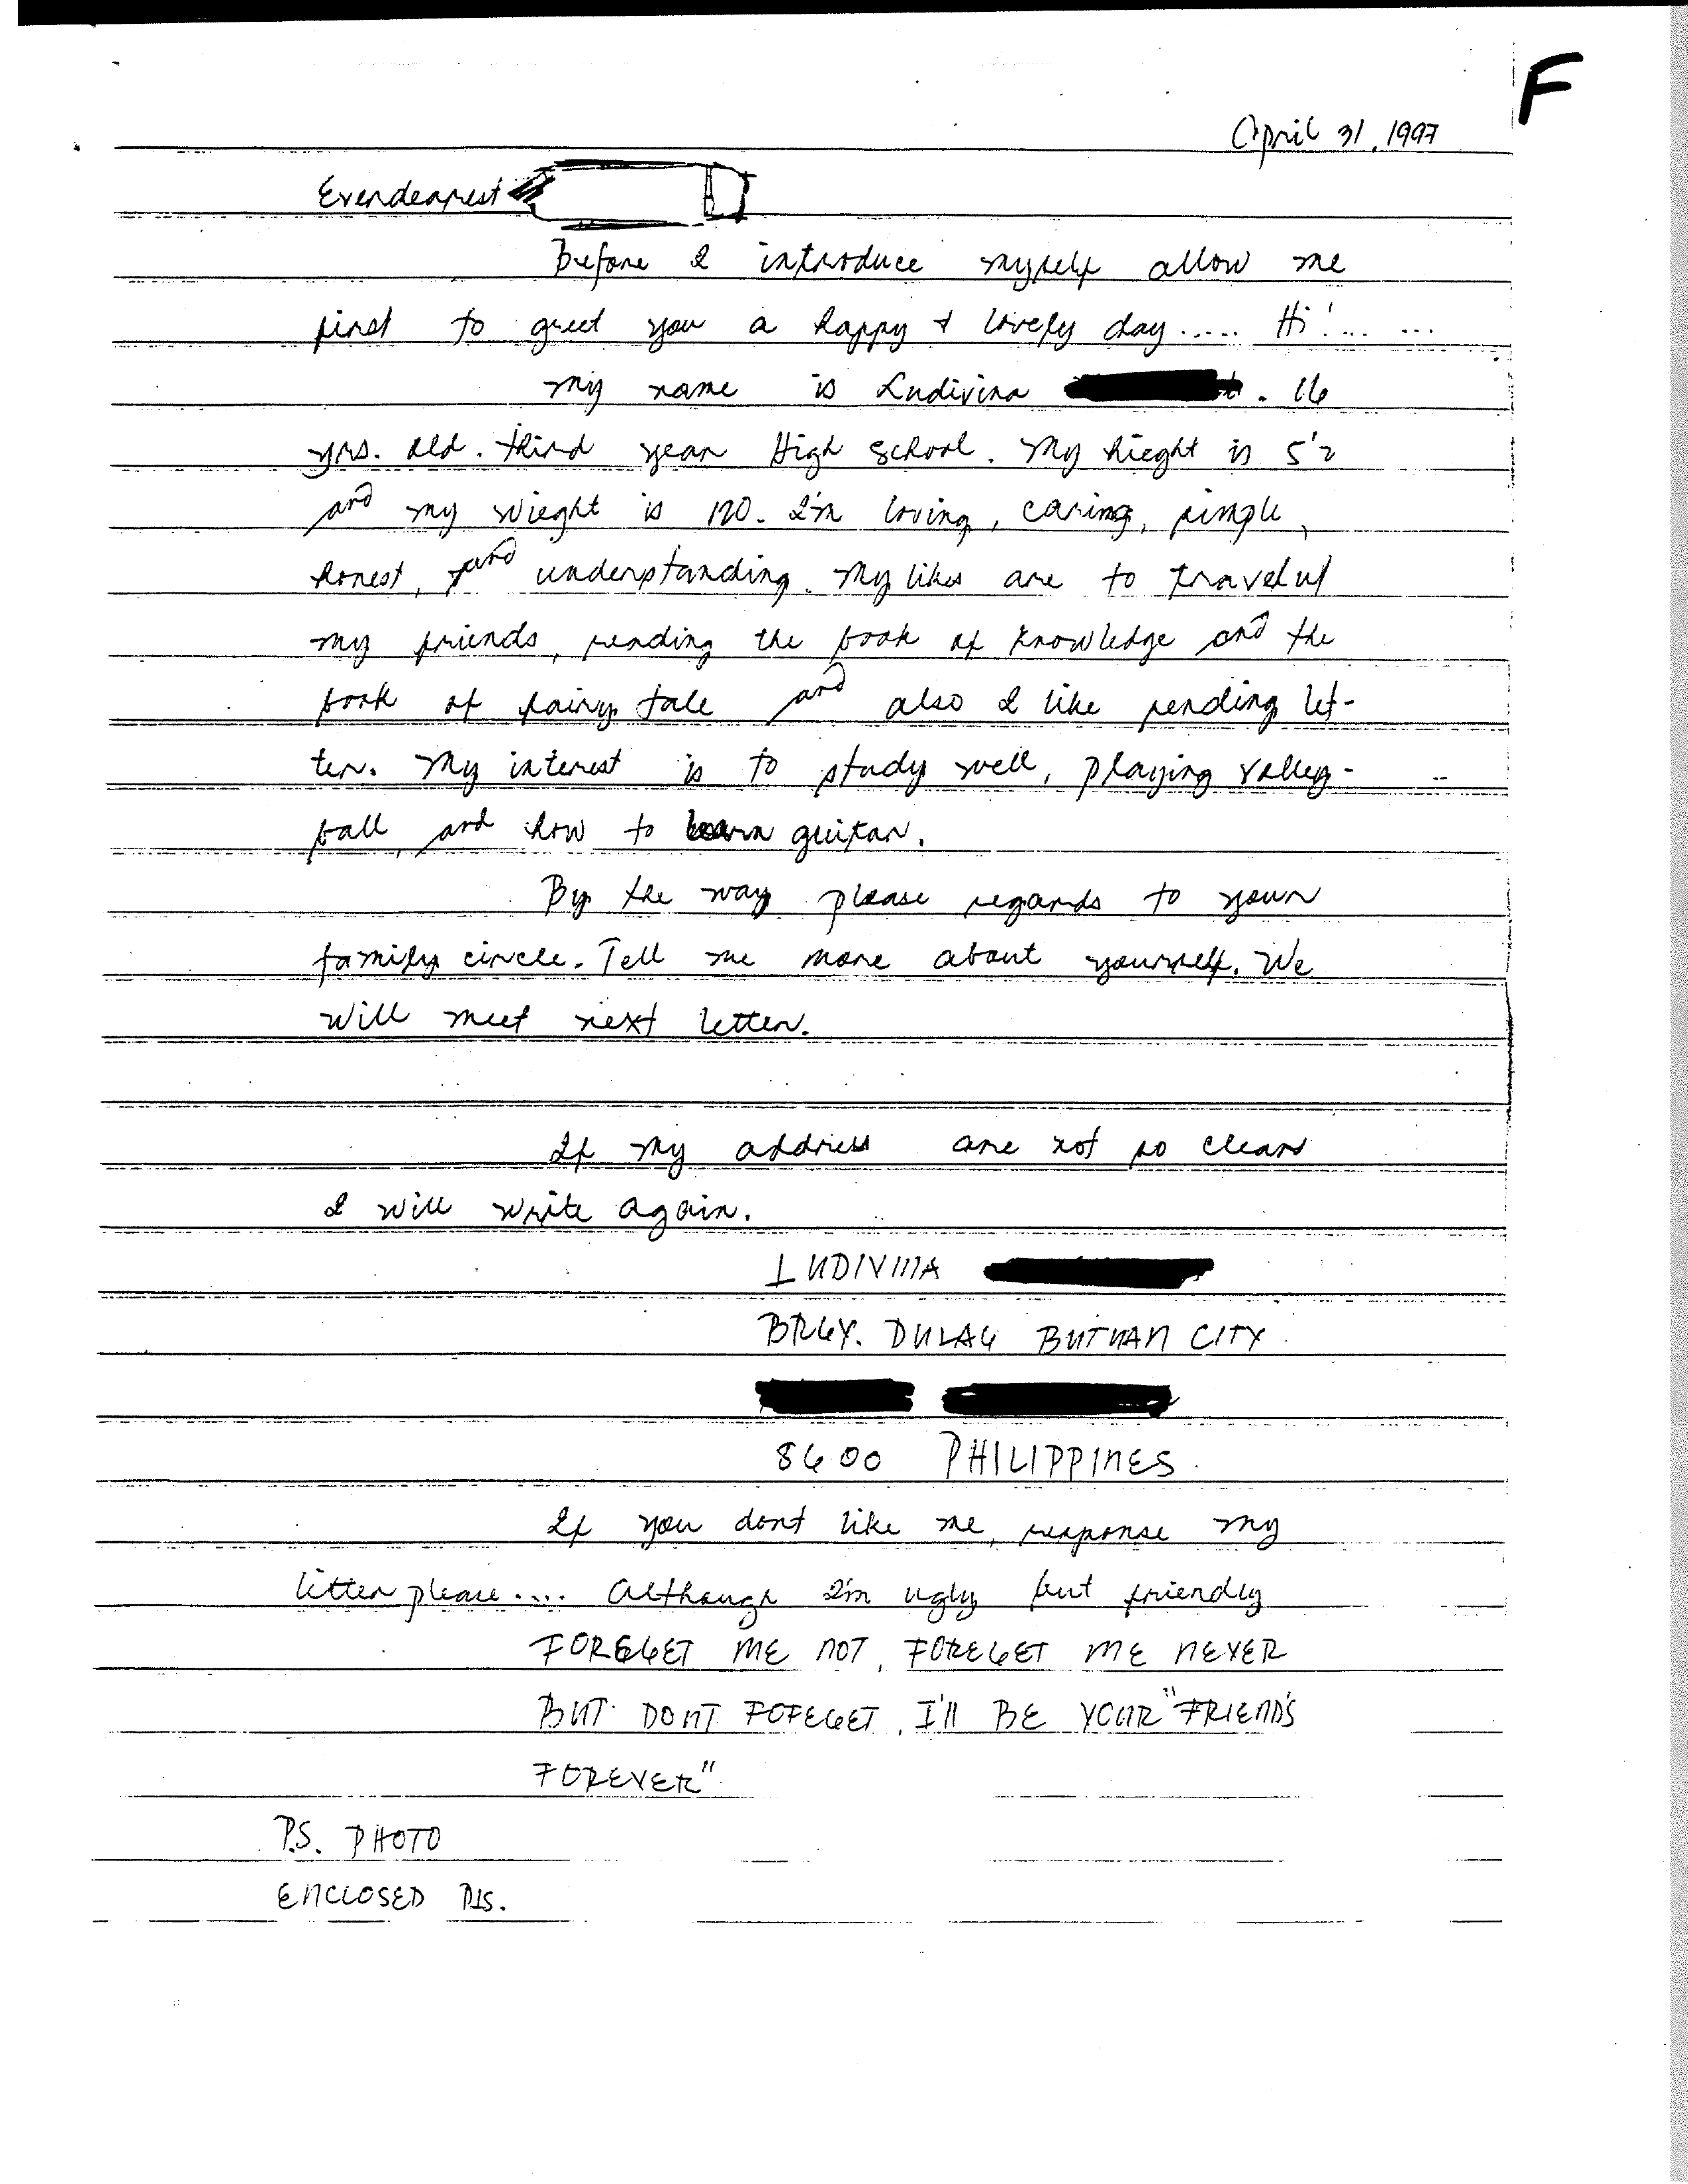 F
April 31, 1997
Everdearest
Before I introduce myself allow me
first to greet you a happy & lovely day..... Hi!... ...
My name is Ludivina . 16
yrs. old. third year High School. My hieght is 5'2
and my wieght is 120. I'm loving, caring, simple,
honest, and understanding. My likes are to travel w/
my friends, reading the book of knowledge and the
book of fairy tale and also I like sending let-
ter. My interest is to study well, playing volley-
ball, and how to learn guitar.
By the way please regards to your
family circle. Tell me more about yourself. We
will meet next letter.
If my address are not so clear
I will write again.
LUDIVINA
BRGY. DULAG BUTUAN CITY
8600 PHILIPPINES
If you dont like me, response my
litter please.... Although I'm ugly but friendly
FORGET ME NOT, FOREGET ME NEVER
BUT DONT FOFEGET, I'll BE YOUR "FRIEND'S
FOREVER"
P.S. PHOTO
ENCLOSED PLS.